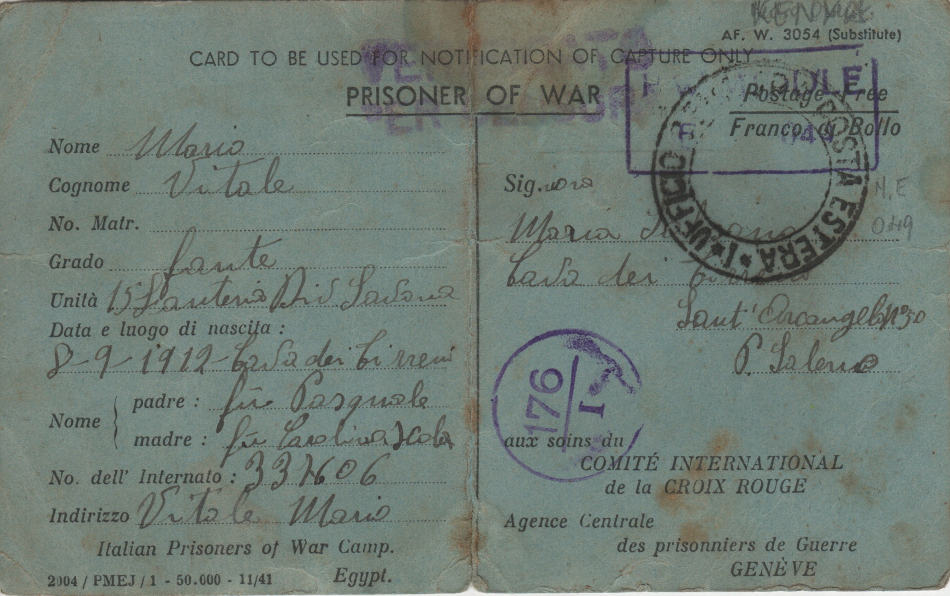 KENYA
AF. W. 3054 (Substitute)
CARD TO BE USED FOR NOTIFICATION OF CAPTURE ONLY
PRISONER OF WAR
Postage Free
Franco di Bollo
UFFICIO POSTA ESTERA
Nome Mario
Cognome Vitale
No. Matr.
Grado fante
Unità 15 Fanteria Div Savona
Data e luogo di nascita :
8-9-1912 Cava dei Tirreni
Nome
padre : fu Pasquale
madre : fu Carolina
No. dell' Internato :
Indirizzo Vitale Mario
Italian Prisoners of War Camp.
Egypt.
2004 / PMEJ / 1 - 50.000 - 11/41
Sig.nora
Maria
Cava dei
Sant' Arcangelo N 50
P. Salerno
M.E
176
I
aux soins du
COMITÉ INTERNATIONAL
de la CROIX ROUGE
Agence Centrale
des prisonniers de Guerre
GENÈVE